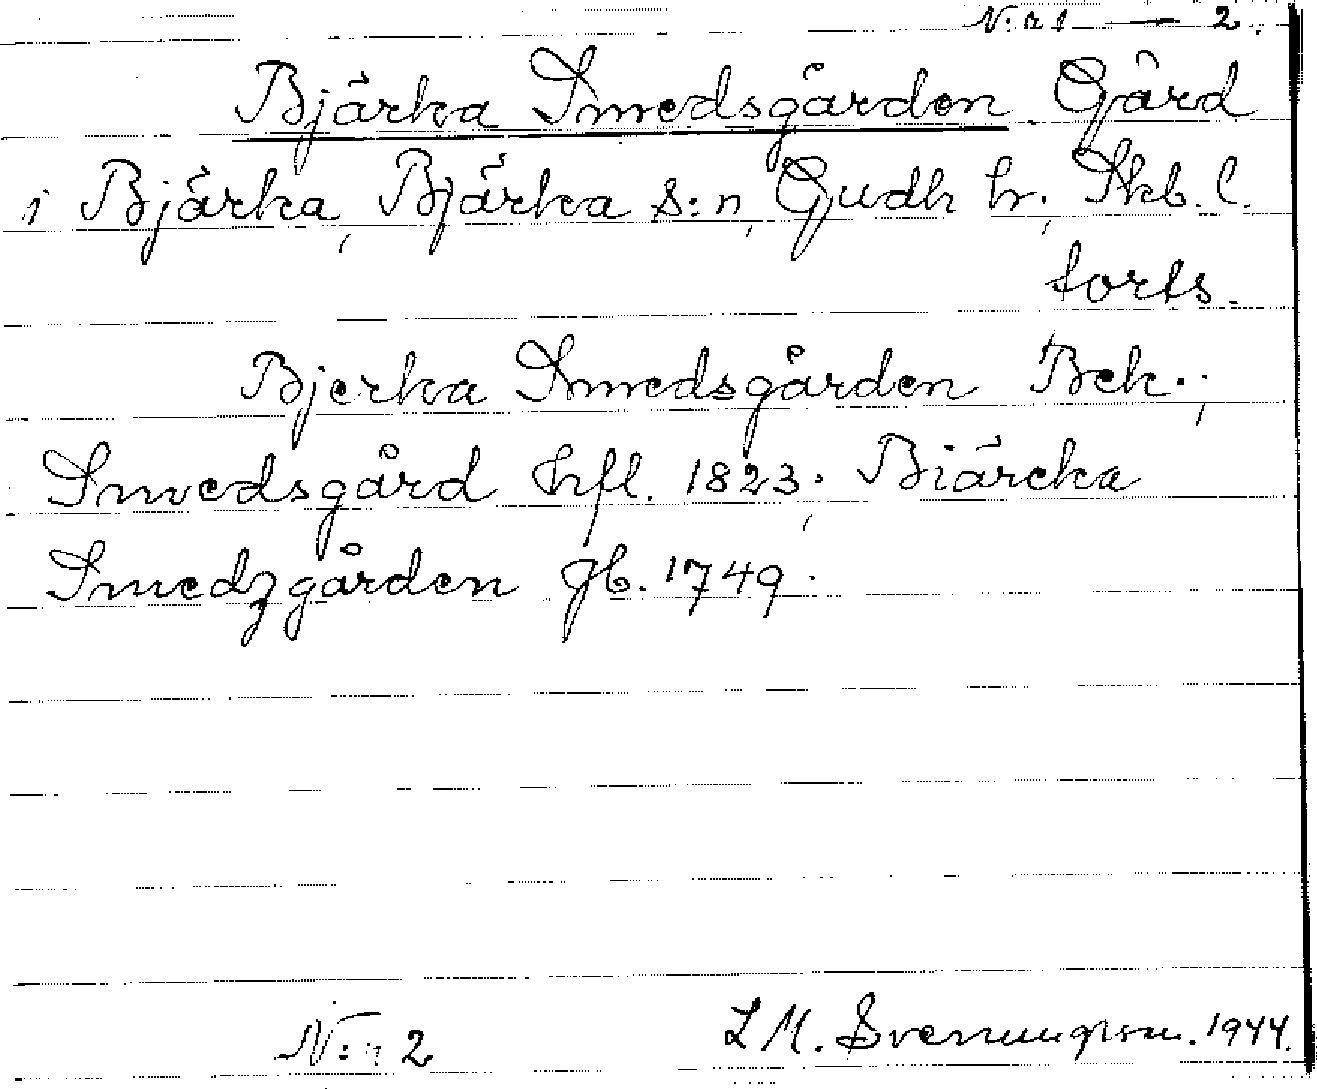 N:r 1 — 2.
Bjärka Smedsgården Gård
i Bjärka, Bjärka s:n, Gudh hr, Skb. l.
forts.
Bjerka Smedsgården Bek.;
Smedsgård hfl. 1823; Biärcka
Smedzgården Jb. 1749.
N:r 2
L M. Svenungsson. 1944.